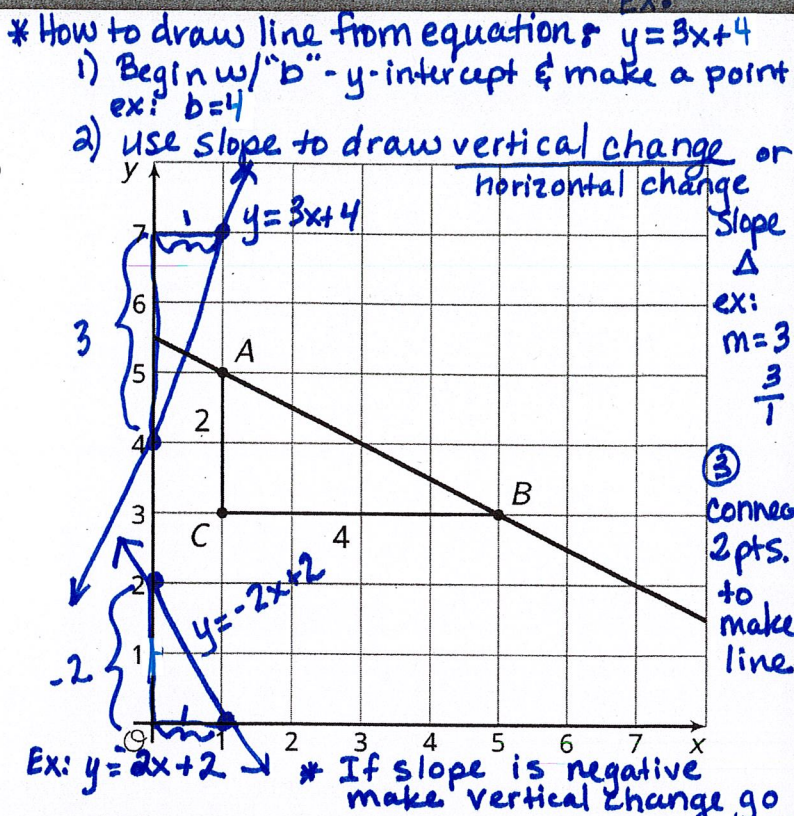 Ex:
* How to draw line from equation: y = 3x+4
1) Begin w/ "b" - y-intercept & make a point
ex: b=4
2) Use slope to draw vertical change or
horizontal change
slope
Δ
ex:
m=3
3
1
③
connec
2 pts.
to
make
line.
y
1
y = 3x+4
7
6
3
5
A
2
4
3
C
4
B
2
y = -2x+2
1
-2
1
O
1
2
3
4
5
6
7
x
Ex: y = -2x+2
* If slope is negative
make vertical change go